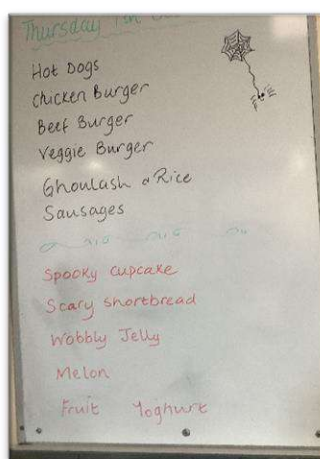 Thursday
Hot Dogs
Chicken Burger
Beef Burger
Veggie Burger
Ghoulash & Rice
Sausages
Spooky cupcake
Scary shortbread
Wobbly Jelly
Melon
Fruit Yoghurt